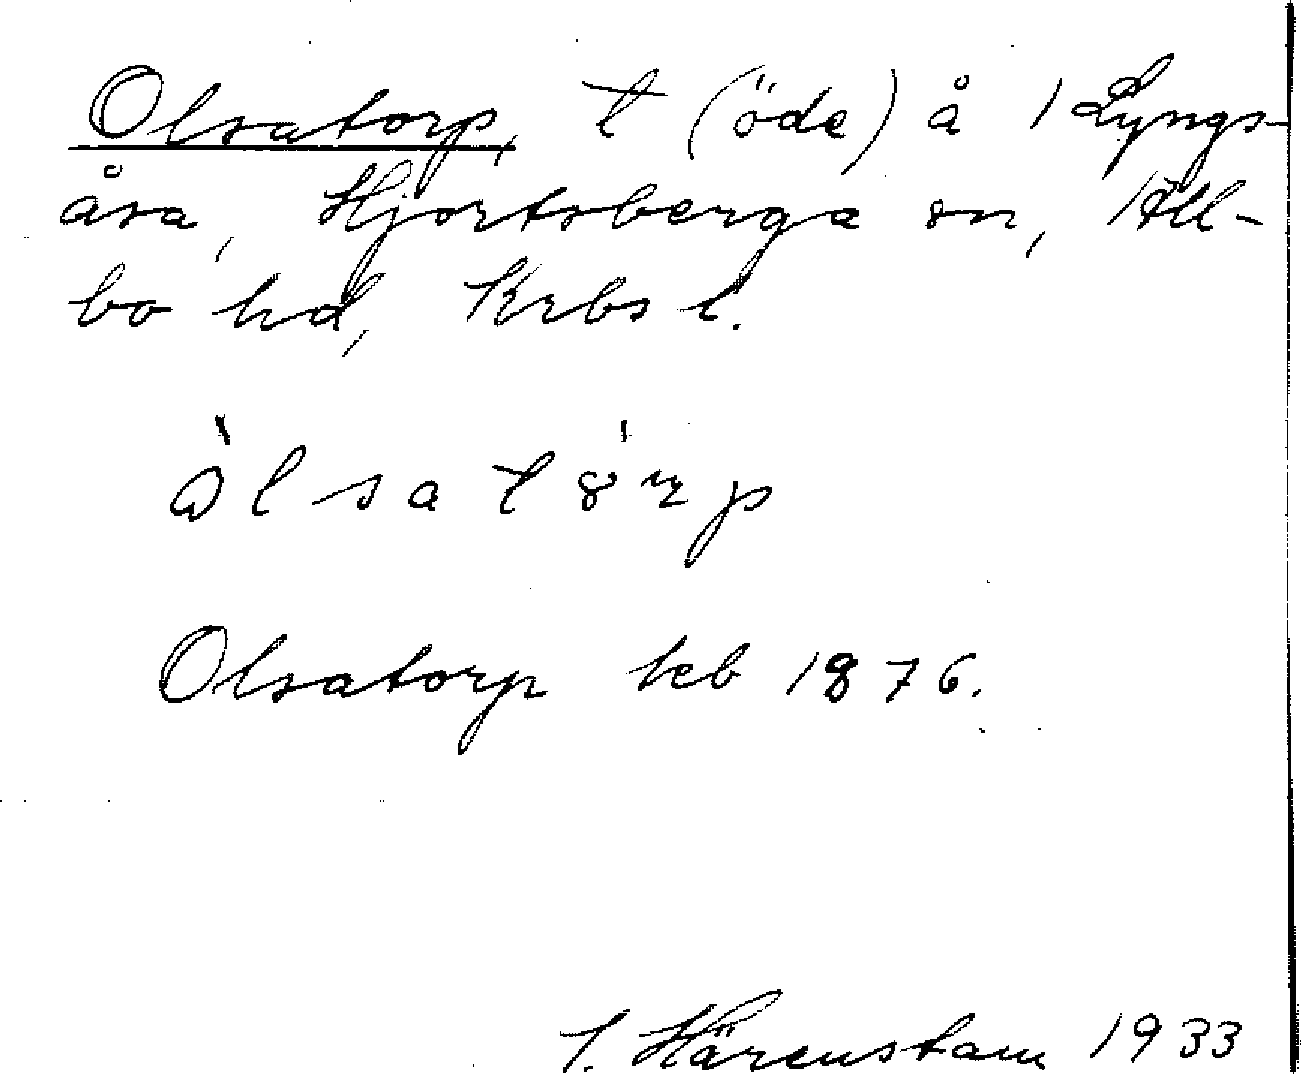 Olsatorp, t (öde) å 1 Lyngs-
åsa, Hjortsberga sn, All-
bo hd, Krbs l.
Olsatorp hcb 1876.
Härenstam 1933